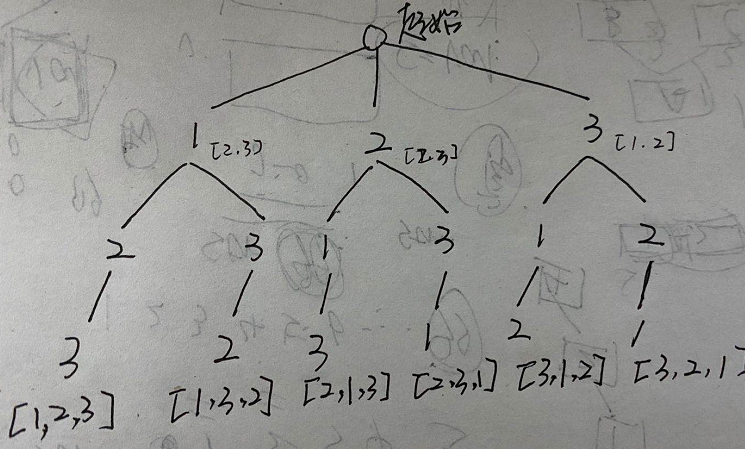 起始
1 [2.3] 2 [1.3] 3 [1.2]
2 3 1 3 1 2
3 2 3 1 2 1
[1,2,3] [1,3,2] [2,1,3] [2,3,1] [3,1,2] [3,2,1]